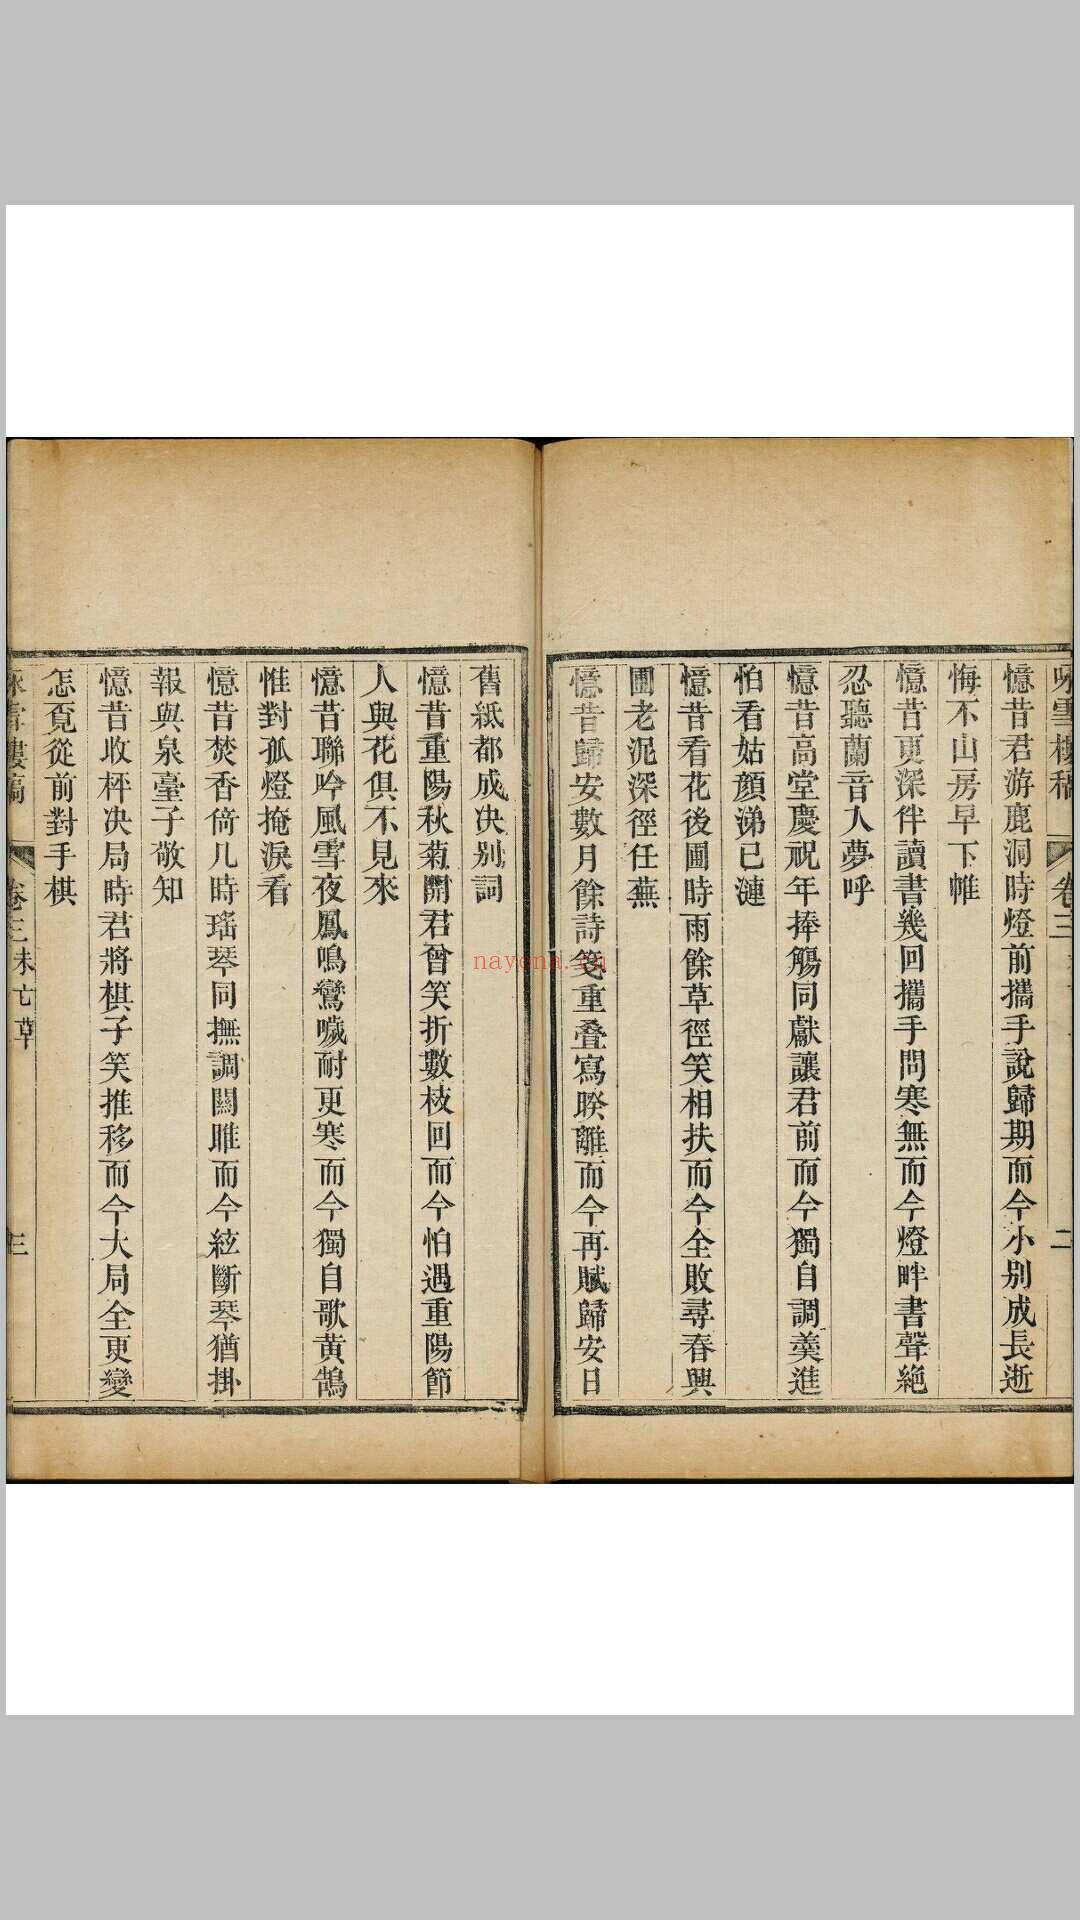 詠雪樓稿 卷三 二
憶昔君游鹿洞時燈前攜手說歸期而今小别成長逝
悔不山房早下帷
憶昔更深伴讀書幾回攜手問寒無而今燈畔書聲絕
忍聽蘭音入夢呼
憶昔高堂慶祝年捧觴同獻讓君前而今獨自調羹進
怕看姑顔涕已漣
憶昔看花後圃時雨餘草徑笑相扶而今全敗尋春興
圃老泥深徑任蕪
憶昔歸安數月餘詩箋重叠寫睽離而今再賦歸安日
舊紙都成决别詞
憶昔重陽秋菊開君曾笑折數枝回而今怕遇重陽節
人與花俱不見來
憶昔聯吟風雪夜鳳鳴鸞噦耐更寒而今獨自歌黄鵠
惟對孤燈掩淚看
憶昔焚香倚几時瑤琴同撫調關雎而今絃斷琴猶掛
報與泉臺子敬知
憶昔收枰决局時君將棋子笑推移而今大局全更變
怎覓從前對手棋
詠雪樓稿 卷三未亡草 三
nayona.cn